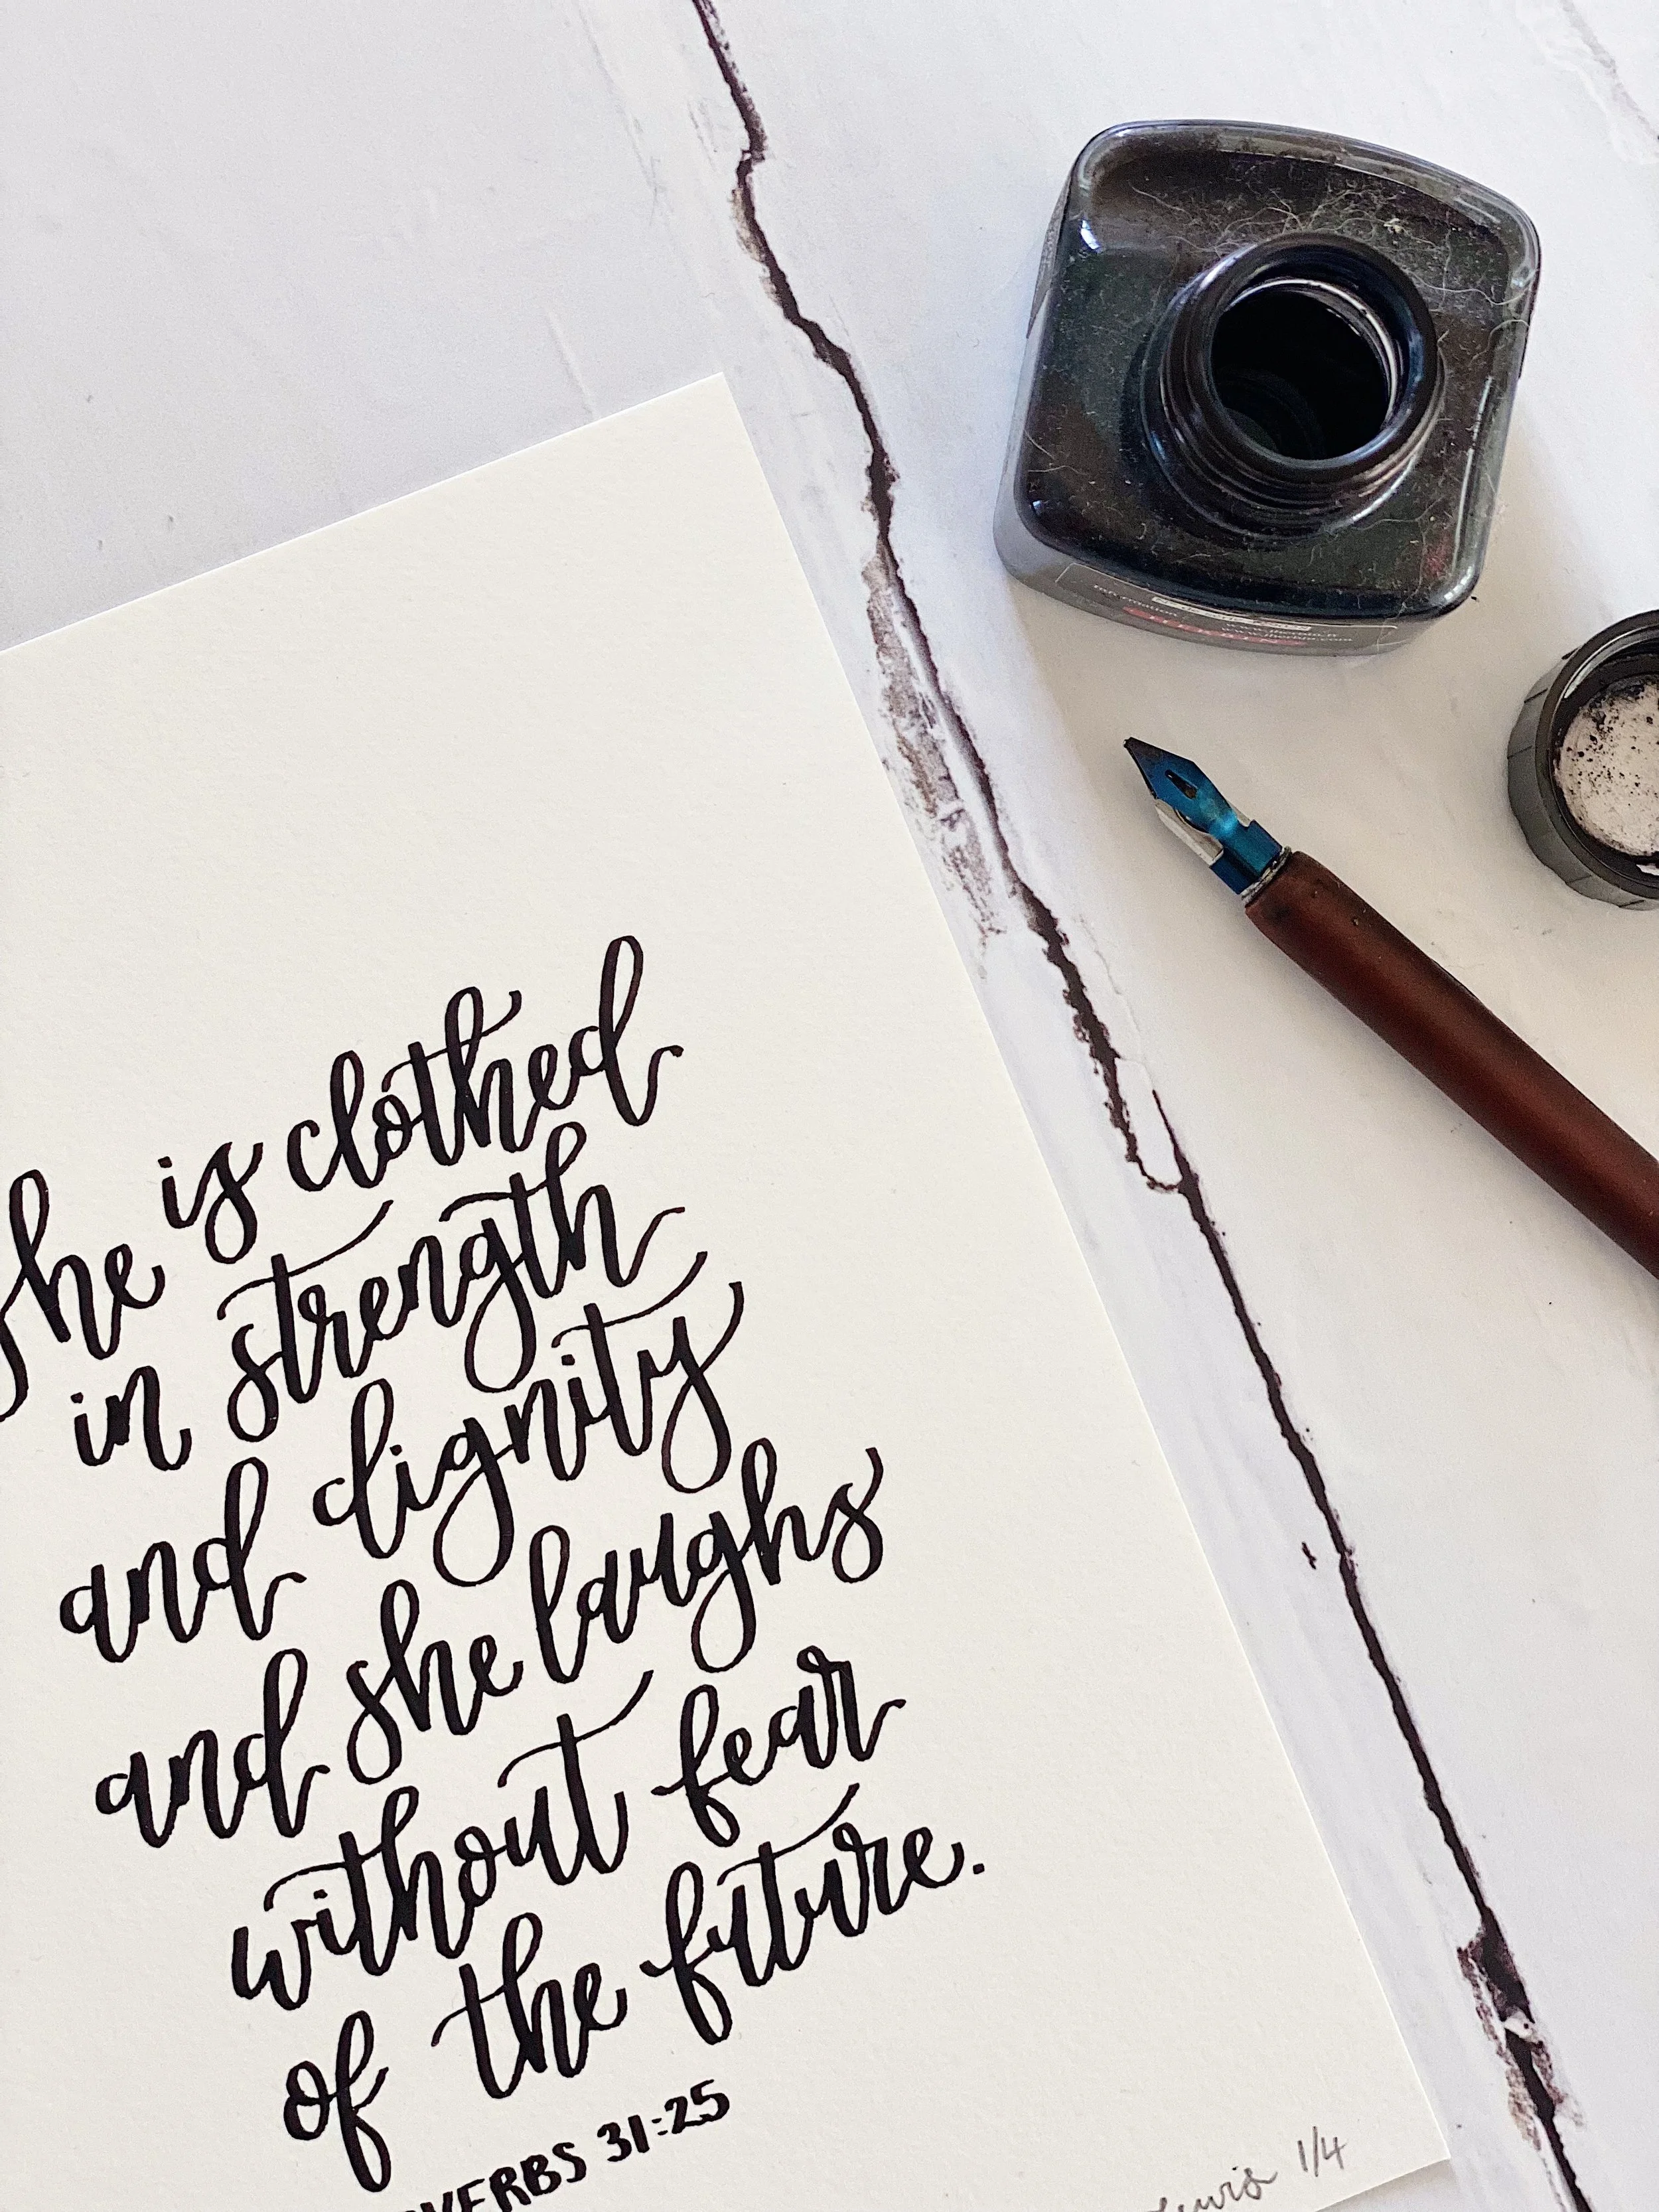 she is clothed
in strength
and dignity
and she laughs
without fear
of the future.
PROVERBS 31:25
1/4